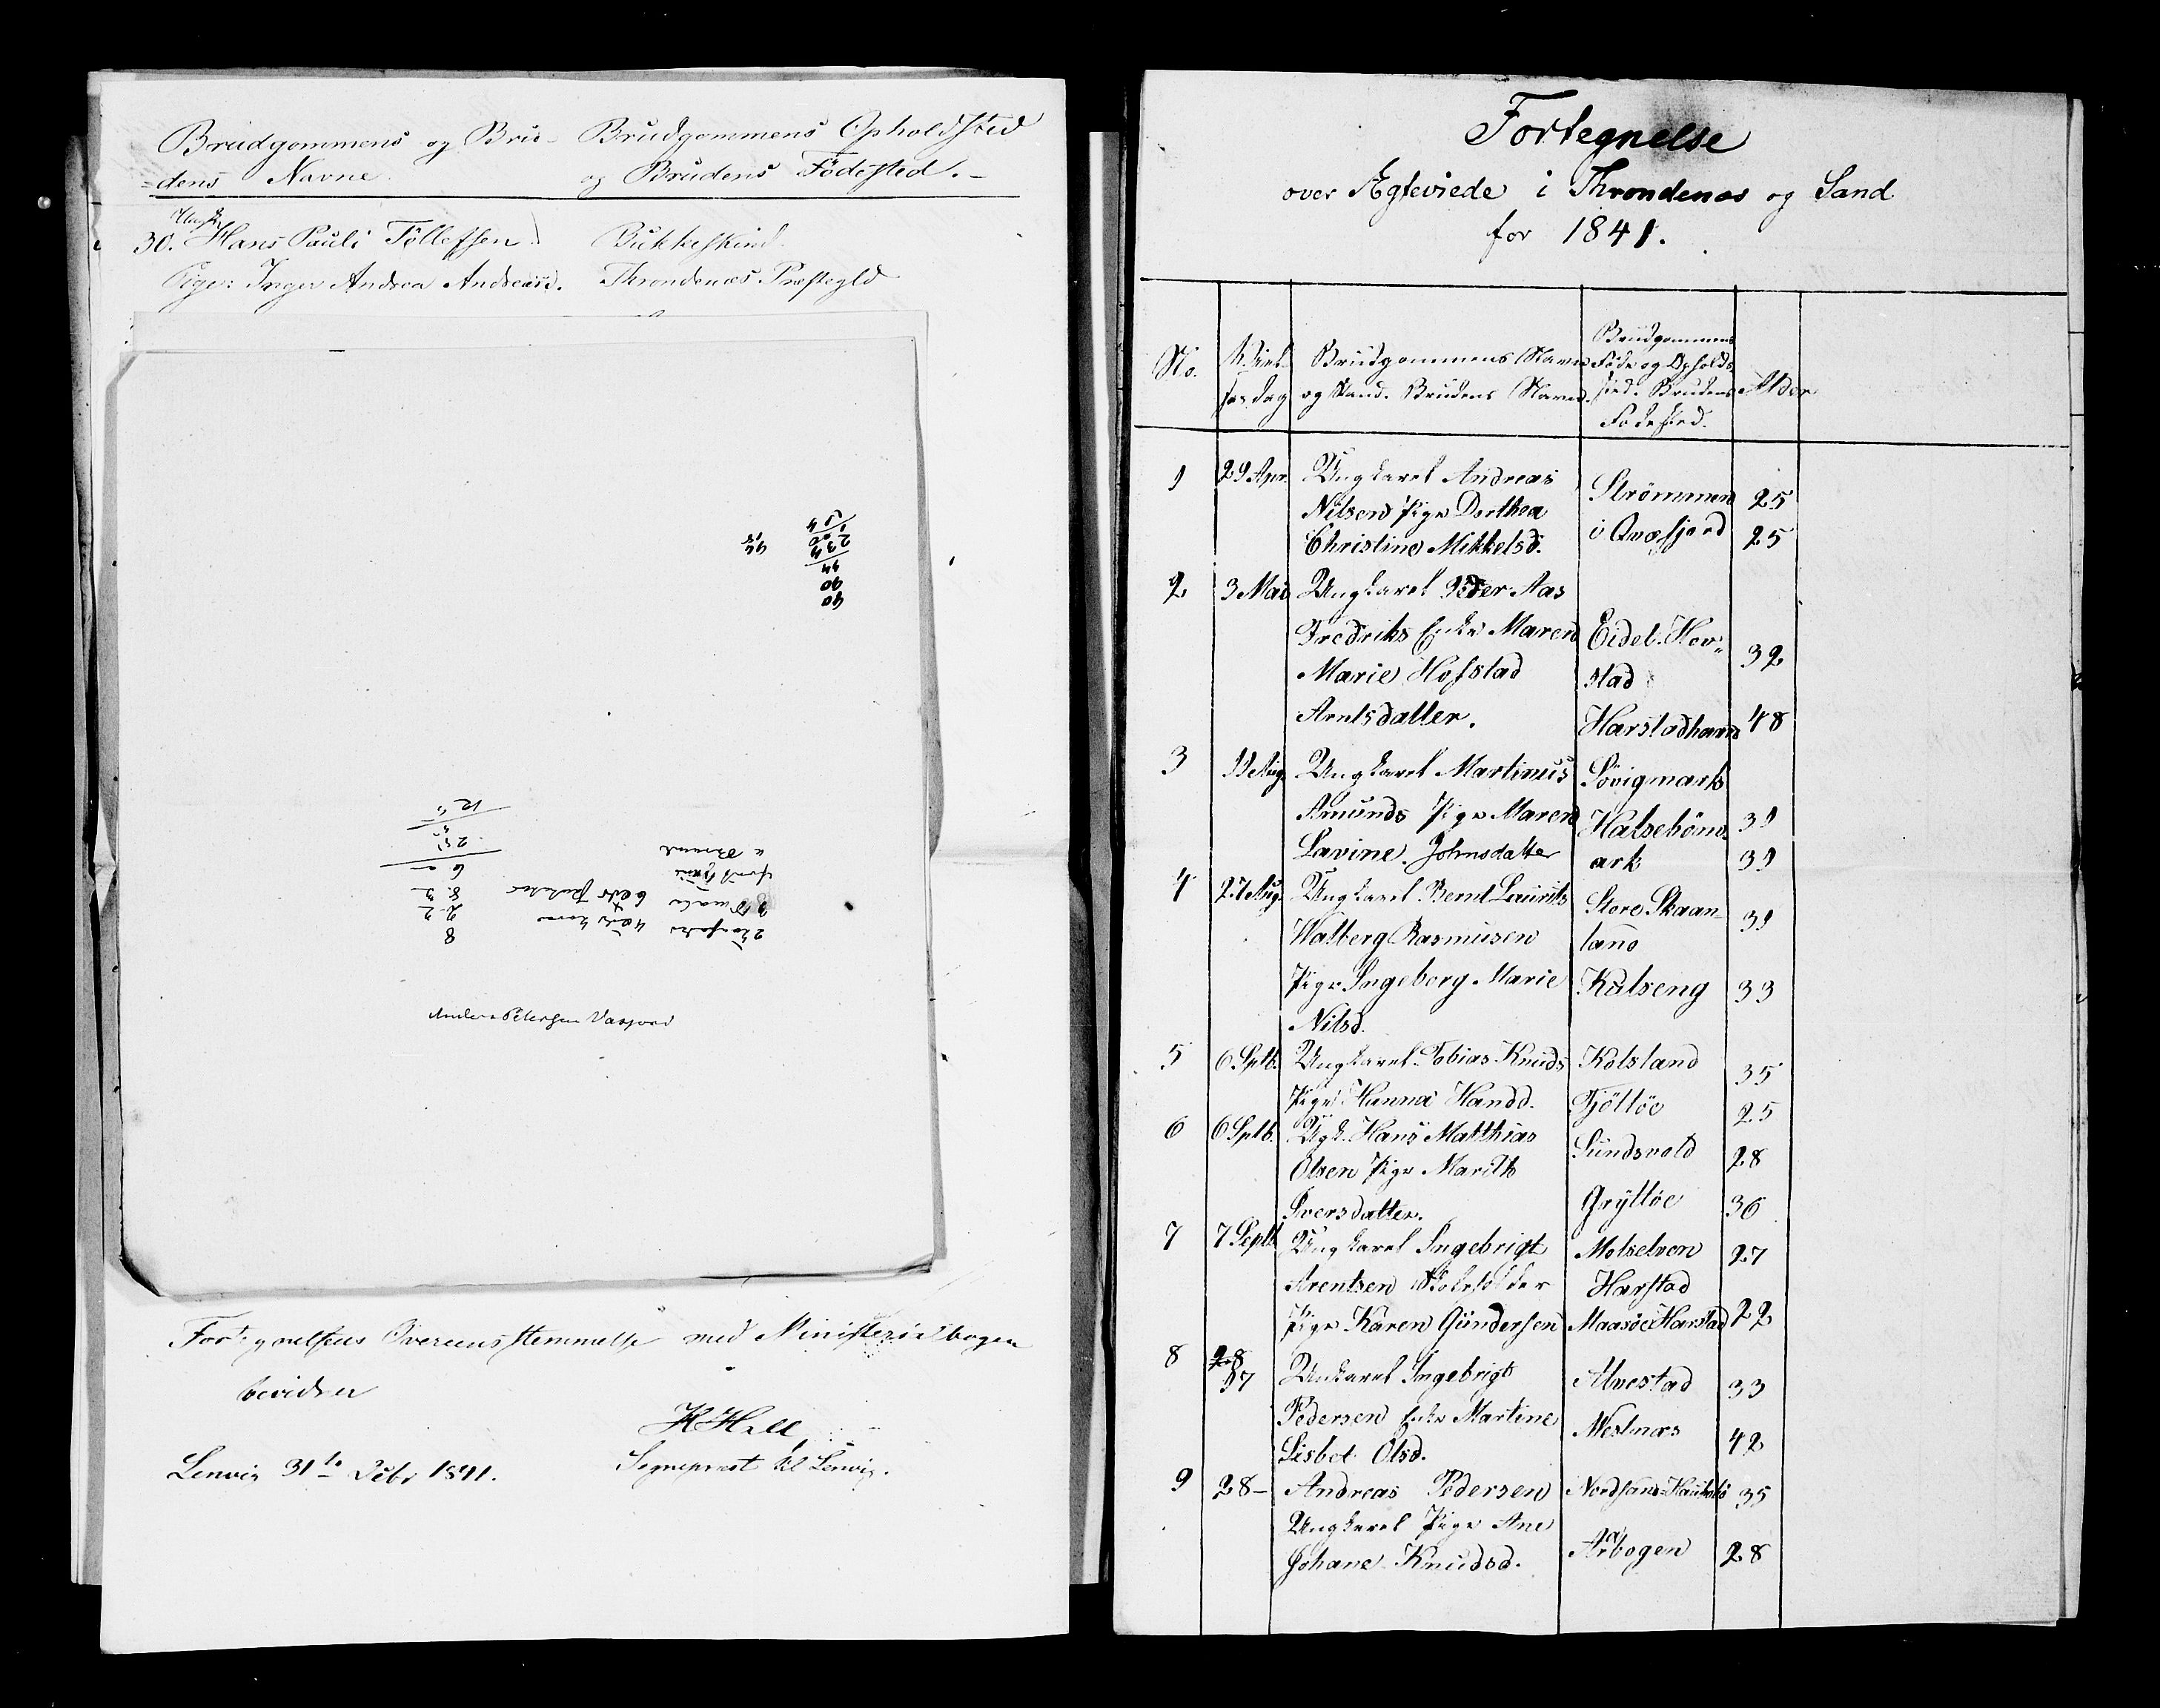 Brudgommens og Bru-
=dens Navne.
Brudgommens Opholdsted
og Brudens Födested.-
30. Hans Pauli Tollefsen
Bukkeskind
Pige: Inger Andrea Andreasd.
Throndenæs Præstegld
40
90
94
234
200
94
18
12
25
6
8
2-2
8
Anders Petersen Vasjord
Fortegnelsens Overeensstemmelse med Ministerialbogen
bevidner
HHall
Lenvig 31te Debr 1841.
Sognepræst til Lenvig.
Fortegnelse
over Ægteviede i Throndenæs og Sand
for 1841.
No.
Viel-
ses dag
Brudgommens Navn
og Stand. Brudens Navn.
Brudgommens
Föde og Opholds-
sted. Brudens
Födested.
Alder
1 29 Apr. Ungkarl Andreas
Nilsen Pige Dorthea
Christine Mikkelsd.
Strömmen 25
i Qvæfjord 25
2 3 Mai Ungkarl Peder Aas
Fredriks Enke Maren
Marie Hofstad
Arntsdatter.
Eidet. Hov„
stad 32
Harstadhavn 48
3 11 Aug. Ungkarl Martinus
Amunds Pige Maren
Lavine Johnsdatter
Sövigmark
Halseböm. 31
ark 31
4 27 Aug. Ungkarl Bernt Laurits
Walberg Rasmusen
Pige Ingeborg Marie
Nilsd.
Store Skaan-
land 31
Kulseng 33
5 6 Sptb. Ungkarl Tobias Knuds
Pige Hanna Hansd.
Kolsland 35
Tjöttöe 25
6 6 Sptb. Ugk. Hans Matthias
Olsen Pige Marith
Iversdatter.
Sundsvold 28
Gryttöe 36
7 7 Septb Ungkarl Ingebrigt
Arentsen
Pige Karen Gundersen
Molselven 27
Harstad
Maasöe Harstad 22
8 28
17 Unkarl Ingebrigt
Pedersen Enke Martine
Lisbet Olsd.
Alvestad 33
Mestnæs 42
9 28- Andreas Pedersen
Ungkarl Pige Ane
Johane Knudsd.
Nordsand 35
Aarbogen 28